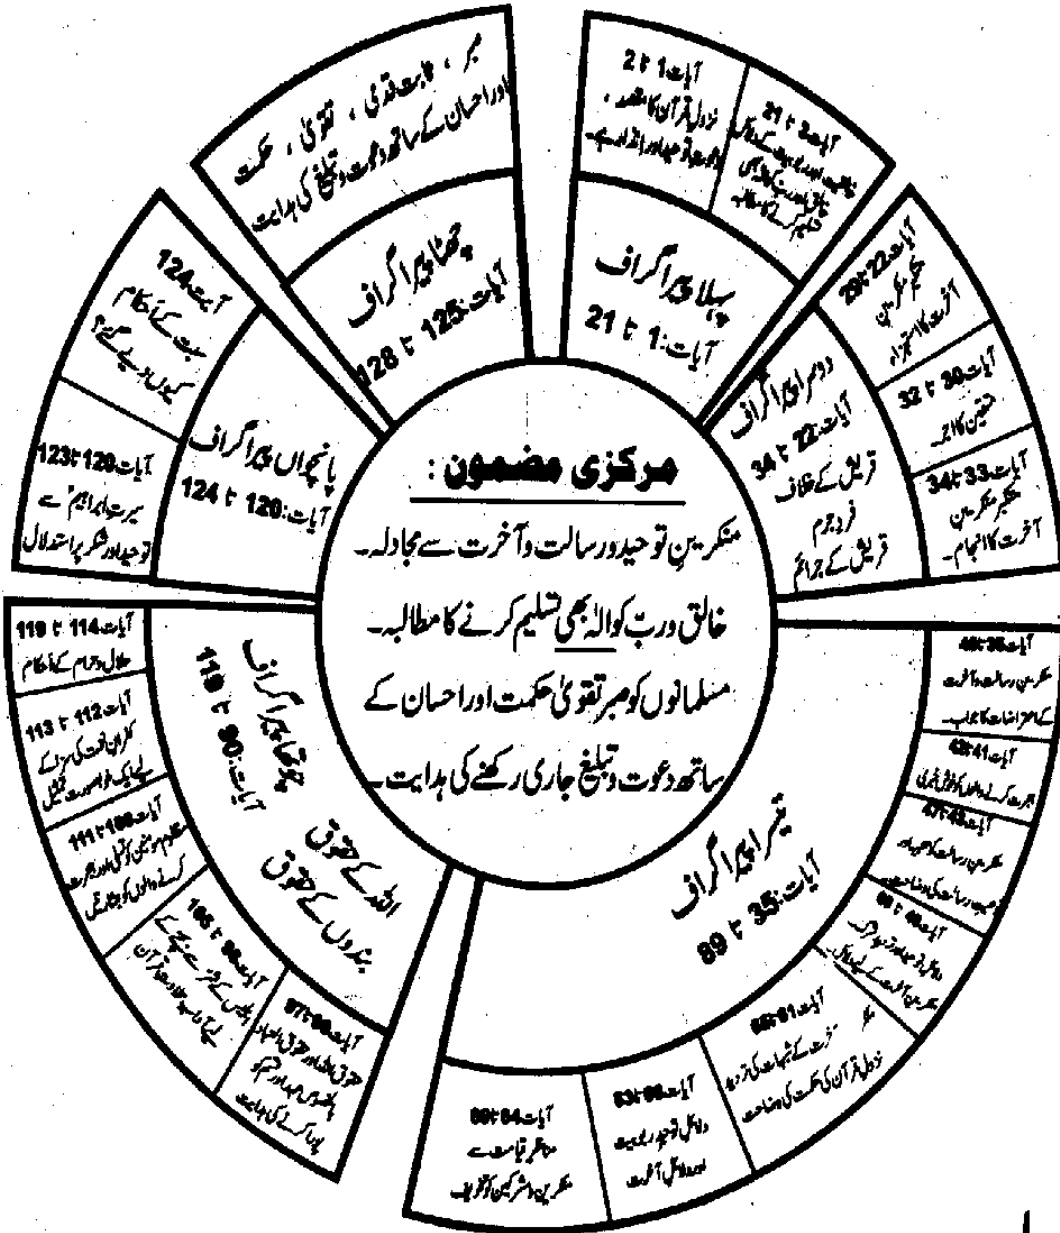 مرکزی مضمون :
منکرینِ توحید و رسالت و آخرت سے مجادلہ۔
خالق و ربّ کو الٰہ بھی تسلیم کرنے کا مطالبہ۔
مسلمانوں کو صبر تقویٰ حکمت اور احسان کے
ساتھ دعوت و تبلیغ جاری رکھنے کی ہدایت۔
پہلا پیراگراف
آیات:1 تا 21
آیات:1 تا 2
نزولِ قرآن کا مقصد ،
دعوتِ توحید اور انذار ہے۔
آیات:3 تا 21
دوسرا پیراگراف
آیات:22 تا 34
قریش کے خلاف
فردِ جرم
قریش کے جرائم
آیات:22 تا 29
آخرت کا استہزاء
آیات:30 تا 32
متقین کا اجر۔
آیات:33 تا 34
متکبر منکرین
آخرت کا انجام۔
تیسرا پیراگراف
آیات:35 تا 89
منکرینِ رسالت و آخرت
کے اعتراضات کا جواب۔
آیات:41 تا 42
ہجرت کرنے والوں کو خوش خبری
آخرت کے شبہات کی تردید
نزولِ قرآن کی حکمت کی وضاحت
دلائلِ توحیدِ ربوبیت
اور دلائلِ آخرت
آیات:84 تا 89
مناظرِ قیامت سے
منکرین و مشرکین کو تخویف
چوتھا پیراگراف
آیات:90 تا 119
اللہ کے حقوق
بندوں کے حقوق
حقوق اللہ اور حقوق العباد
بالخصوص عہد اور قسم کو
پورا کرنے کی ہدایت
آیات:98 تا 105
آیات:106 تا 111
آیات:112 تا 113
کفرانِ نعمت کی سزا کے
لیے ایک خوبصورت تمثیل
آیات:114 تا 119
حلال و حرام کے احکام
پانچواں پیراگراف
آیات:120 تا 124
آیات:120 تا 123
سیرتِ ابراہیمؑ سے
توحید اور شکر پر استدلال
آیت:124
سبت کے احکام
کیوں دیے گئے؟
چھٹا پیراگراف
آیات:125 تا 128
صبر ، ثابت قدمی ، تقویٰ ، حکمت
اور احسان کے ساتھ دعوت و تبلیغ کی ہدایت